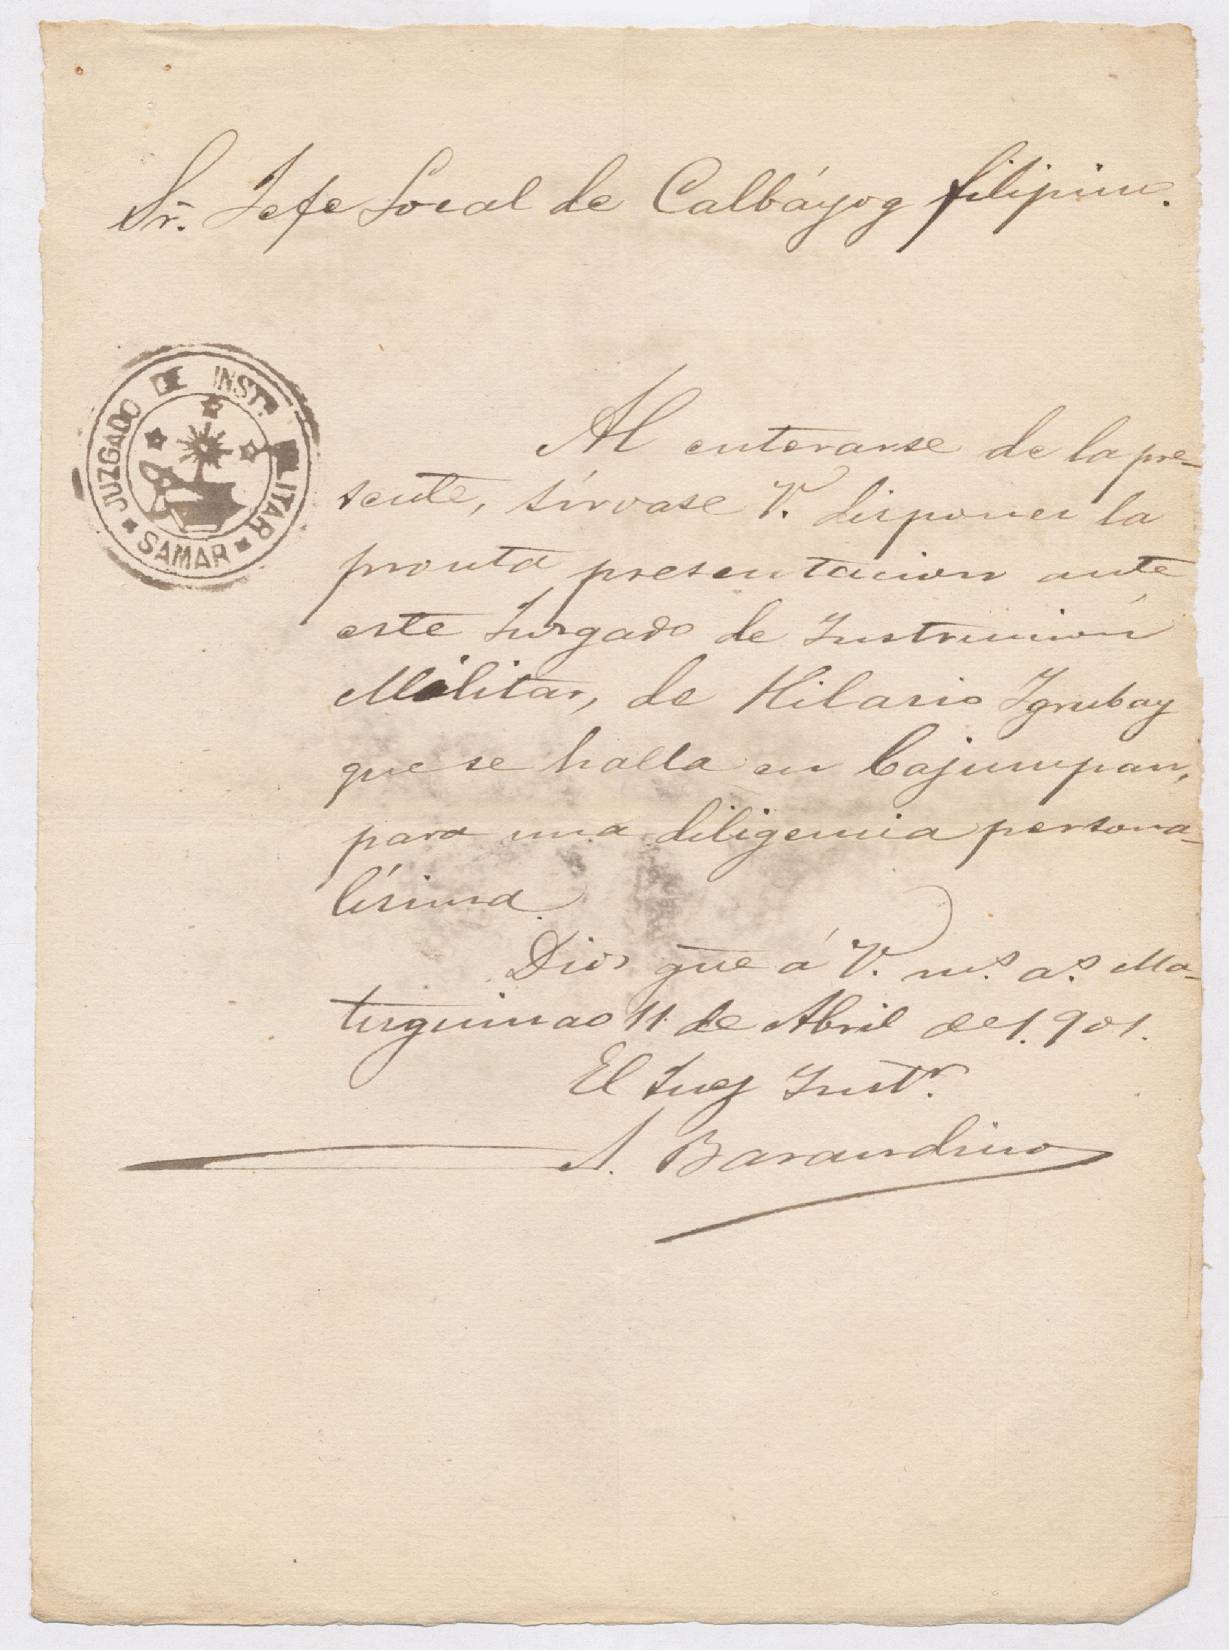 Sr. Jefe Local de Calbáyog filipino.
JUZGADO DE INST.
MILITAR
SAMAR
Al enterarse de la pre-
sente, sírvase V. disponer la
pronta presentacion ante
este Juzgado de Instrucción
Militar, de Hilario Ygnubay
que se halla en Cajumpan,
para una diligencia persona-
lísima.
Dios gue á V. ms. as. Ma-
tuguinao 11 de Abril de 1.901.
El Juez Instr.
A. Barandino